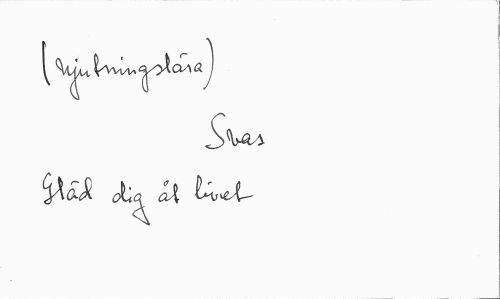 (njutningslära)
Svas
Gläd dig åt livet